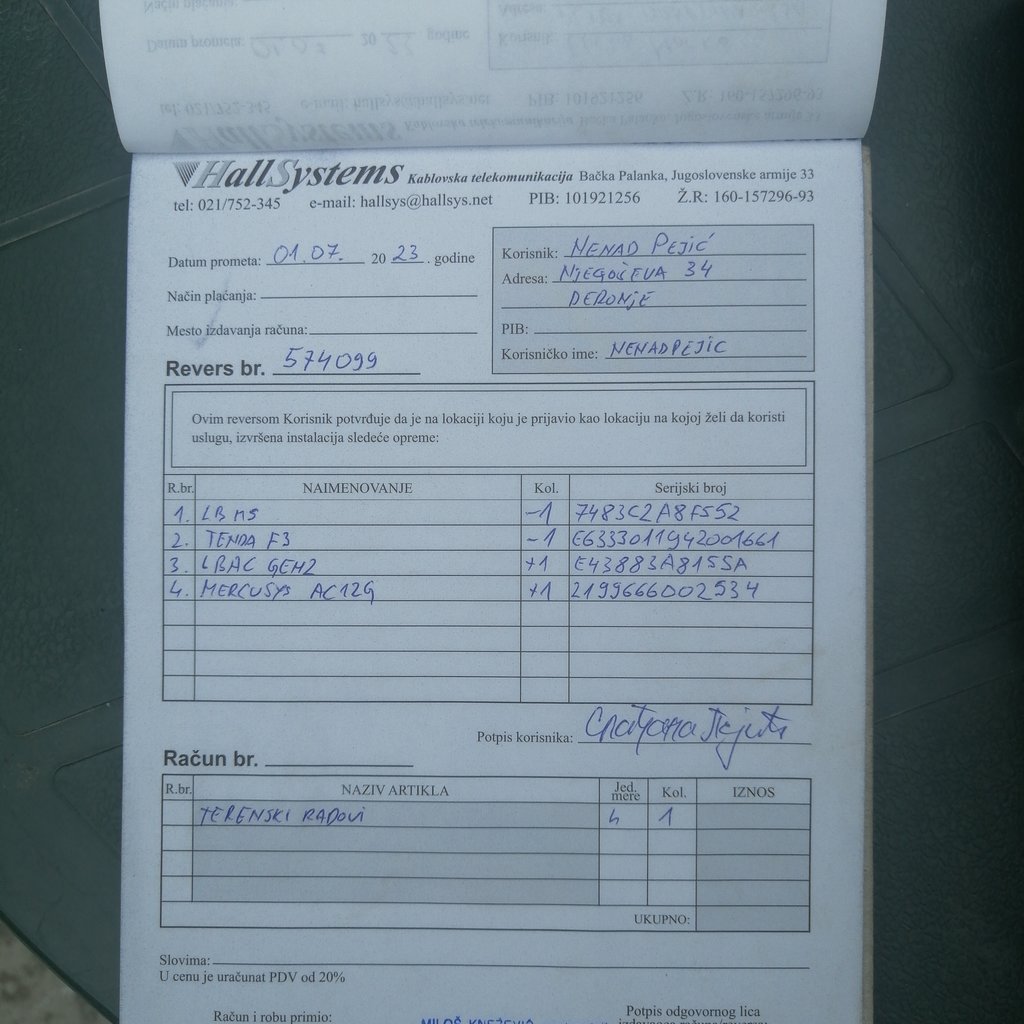 HallSystems Kablovska telekomunikacija Bačka Palanka, Jugoslovenske armije 33
tel: 021/752-345 e-mail: hallsys@hallsys.net PIB: 101921256 Ž.R: 160-157296-93
Datum prometa: 01.07. 20 23. godine
Način plaćanja:
Mesto izdavanja računa:
Revers br. 574099
Korisnik: NENAD PEJIĆ
Adresa: NJEGOŠEVA 34
DERONJE
PIB:
Korisničko ime: NENADPEJIC
Ovim reversom Korisnik potvrđuje da je na lokaciji koju je prijavio kao lokaciju na kojoj želi da koristi
uslugu, izvršena instalacija sledeće opreme:
R.br. NAIMENOVANJE Kol. Serijski broj
1. LB M5 -1 7483C2A8F552
2. TENDA F3 -1 E6333011942001661
3. LBAC GEN2 +1 E43883A8155A
4. MERCUSYS AC12G +1 2199666002534
Potpis korisnika:
Račun br.
R.br. NAZIV ARTIKLA Jed. mere Kol. IZNOS
TERENSKI RADOVI h 1
UKUPNO:
Slovima:
U cenu je uračunat PDV od 20%
Račun i robu primio: Potpis odgovornog lica
MILOŠ KNEŽEVIĆ